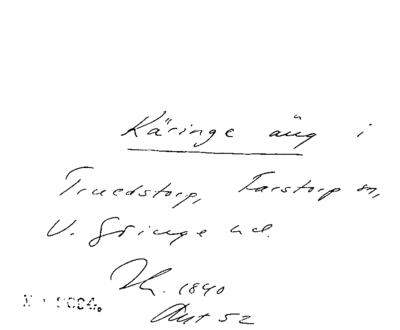 Käringe äng i
Truedstorp, Farstorp sn,
V. Göinge hd.
1840
Aut 52